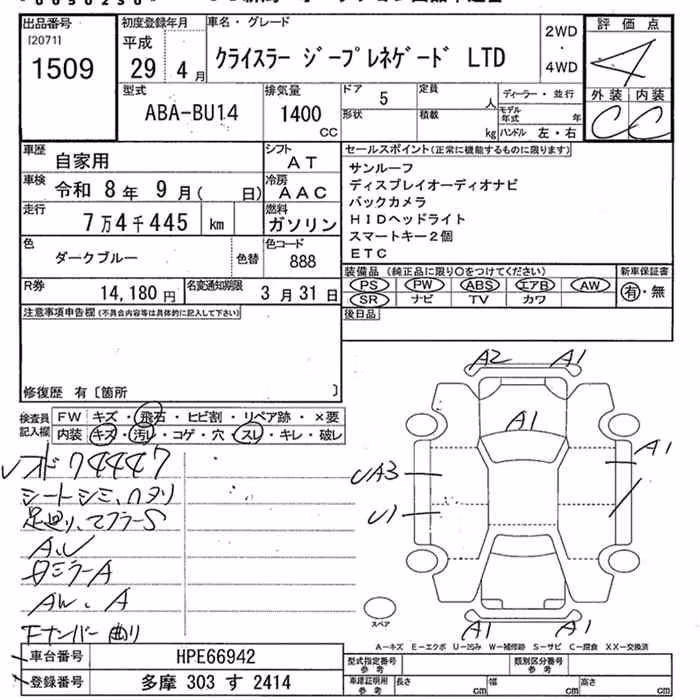 出品番号
[2071]
1509
初度登録年月
平成
29 4月
車名・グレード
クライスラー ジープレネゲード LTD
2WD
・
4WD
評価点
4
外装 内装
C C
型式
ABA-BU14
排気量
1400
CC
ドア 5
形状
定員
人
積載
kg
ディーラー・並行
モデル年式 年
ハンドル 左・右
車歴
自家用
シフト
AT
車検
令和 8年 9月( 日)
冷房
AAC
走行
7万4千445 km
燃料
ガソリン
色
ダークブルー
色替
色コード
888
R券
14,180円
名変通知期限
3月31日
セールスポイント(正常に機能するものに限ります)
サンルーフ
ディスプレイオーディオナビ
バックカメラ
HIDヘッドライト
スマートキー2個
ETC
装備品 (純正品に限り○をつけてください)
新車保証書
PS PW ABS エアB AW
SR ナビ TV カワ
有・無
後日品
注意事項申告欄(不具合内容等は具体的に記入して下さい)
修復歴 有〔箇所 〕
検査員記入欄
FW キズ・飛石・ヒビ割・リペア跡・×要
内装 キズ・汚レ・コゲ・穴・スレ・キレ・破レ
74447
シートシミ、ヘタリ
足廻り、マフラーS
AW
AW、A
Fナンバー曲り
A2 A1
A1
A1
UA3
U1
A1 A1
スペア
A-キズ E-エクボ U-凹み W-補修跡 S-サビ C-腐食 XX-交換済
車台番号 HPE66942
登録番号 多摩 303 す 2414
型式指定番号
参考
類別区分番号
参考
車庫証明用
参考
長さ cm 幅 cm 高さ cm